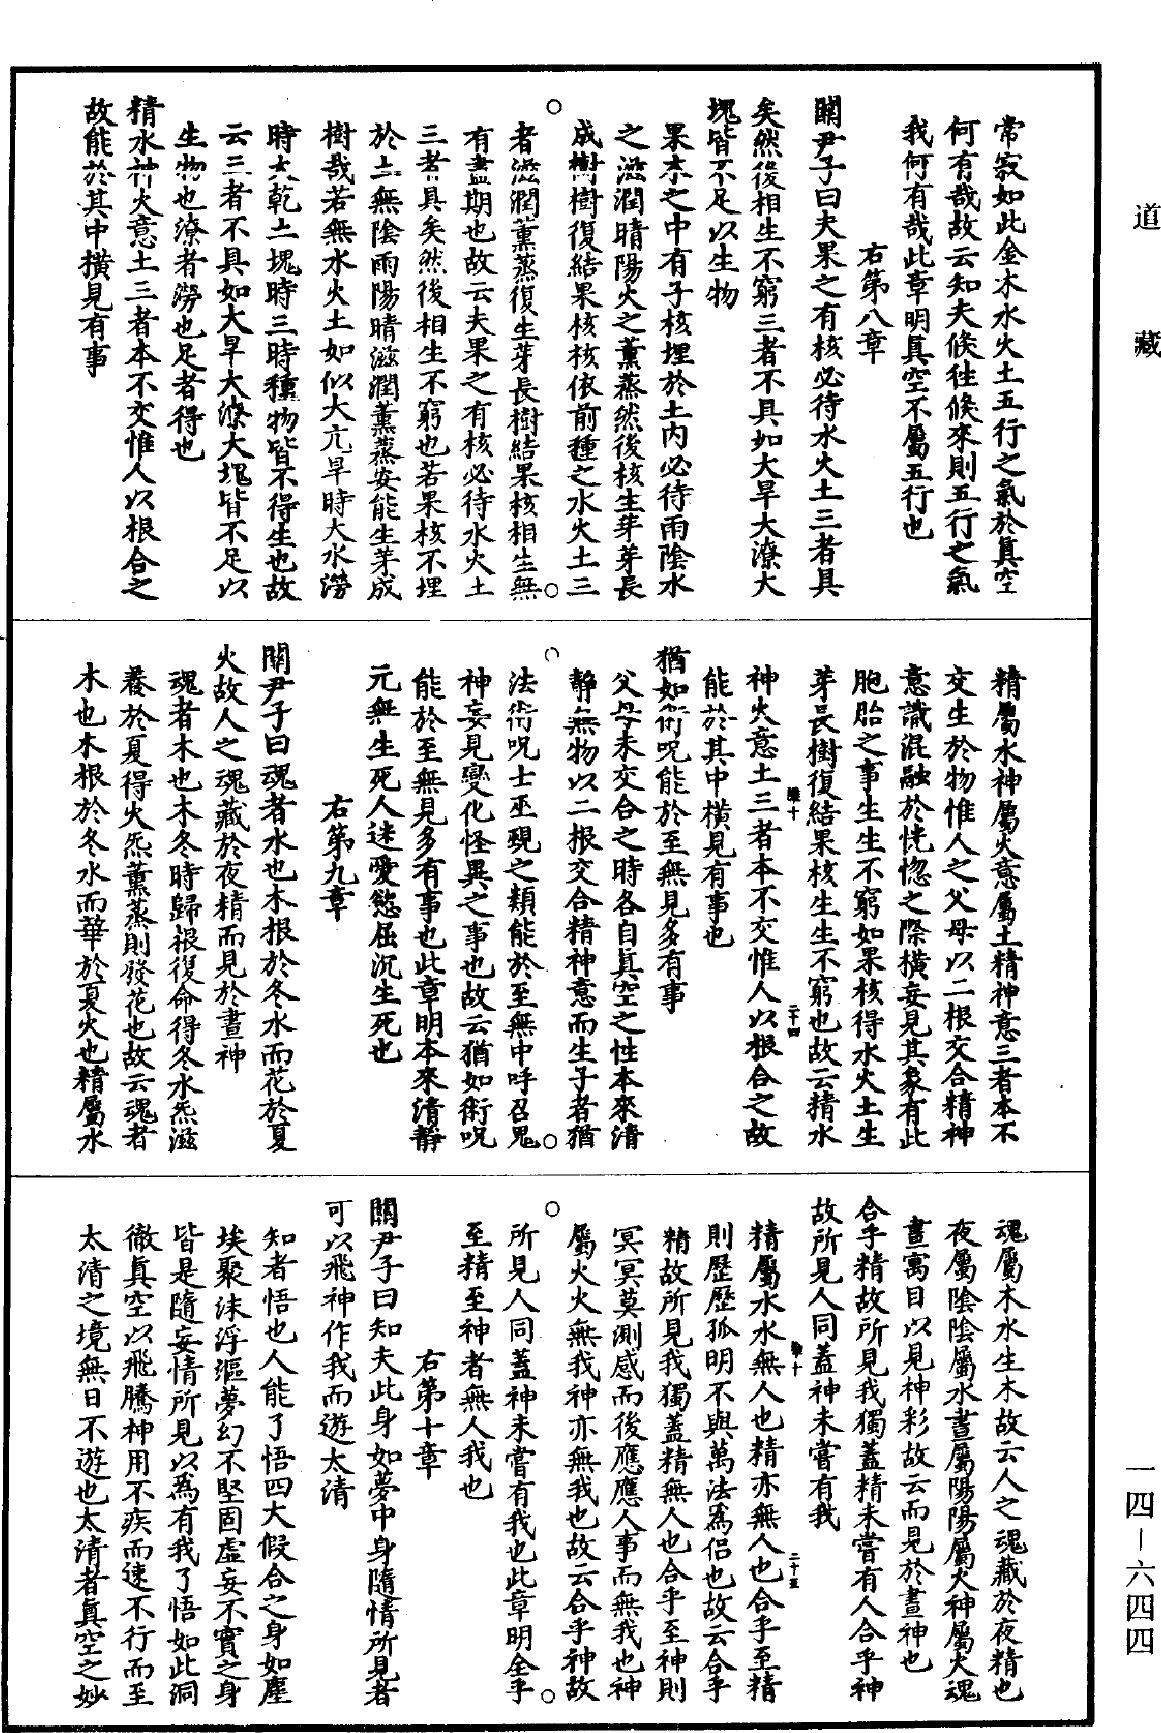 道藏
常寂如此金木水火土五行之氣於真空
何有哉故云知夫倏往倏來則五行之氣
我何有哉此章明真空不屬五行也
右第八章
關尹子曰夫果之有核必待水火土三者具
矣然後相生不窮三者不具如大旱大潦大
塊皆不足以生物
果木之中有子核埋於土内必待雨陰水
之滋潤晴陽火之薰蒸然後核生芽芽長
成樹樹復結果核核依前種之水火土三
者滋潤薰蒸復生芽長樹結果核相生無
有盡期也故云夫果之有核必待水火土
三者具矣然後相生不窮也若果核不埋
於土無陰雨陽晴滋潤薰蒸安能生芽成
樹哉若無水火土如似大亢旱時大水澇
時太乾土塊時三時種物皆不得生也故
云三者不具如大旱大潦大塊皆不足以
生物也潦者澇也足者得也
精水神火意土三者本不交惟人以根合之
故能於其中橫見有事
精屬水神屬火意屬土精神意三者本不
交生於物惟人之父母以二根交合精神
意識混融於恍惚之際橫妄見其象有此
胞胎之事生生不窮如果核得水火土生
芽長樹復結果核生生不窮也故云精水
神火意土三者本不交惟人以根合之故
能於其中橫見有事也
猶如術呪能於至無見多有事
父母未交合之時各自真空之性本來清
靜無物以二根交合精神意而生子者猶
法術呪士巫覡之類能於至無中呼召鬼
神妄見變化怪異之事也故云猶如術呪
能於至無見多有事也此章明本來清靜
元無生死人迷愛慾屈沉生死也
右第九章
關尹子曰魂者木也木根於冬水而花於夏
火故人之魂藏於夜精而見於晝神
魂者木也木冬時歸根復命得冬水炁滋
養於夏得火炁薰蒸則發花也故云魂者
木也木根於冬水而華於夏火也精屬水
魂屬木水生木故云人之魂藏於夜精也
夜屬陰陰屬水晝屬陽陽屬火神屬火魂
晝寓目以見神彩故云而見於晝神也
合乎精故所見我獨蓋精未嘗有人合乎神
故所見人同蓋神未嘗有我
精屬水水無人也精亦無人也合乎至精
則歷歷孤明不與萬法為侶也故云合乎
精故所見我獨蓋精無人也合乎至神則
冥冥莫測感而後應應人事而無我也神
屬火火無我神亦無我也故云合乎神故
所見人同蓋神未嘗有我也此章明全乎
至精至神者無人我也
右第十章
關尹子曰知夫此身如夢中身隨情所見者
可以飛神作我而遊太清
知者悟也人能了悟四大假合之身如塵
埃聚沫浮漚夢幻不堅固虛妄不實之身
皆是隨妄情所見以為有我了悟如此洞
徹真空以飛騰神用不疾而速不行而至
太清之境無日不遊也太清者真空之妙
一四—六四四